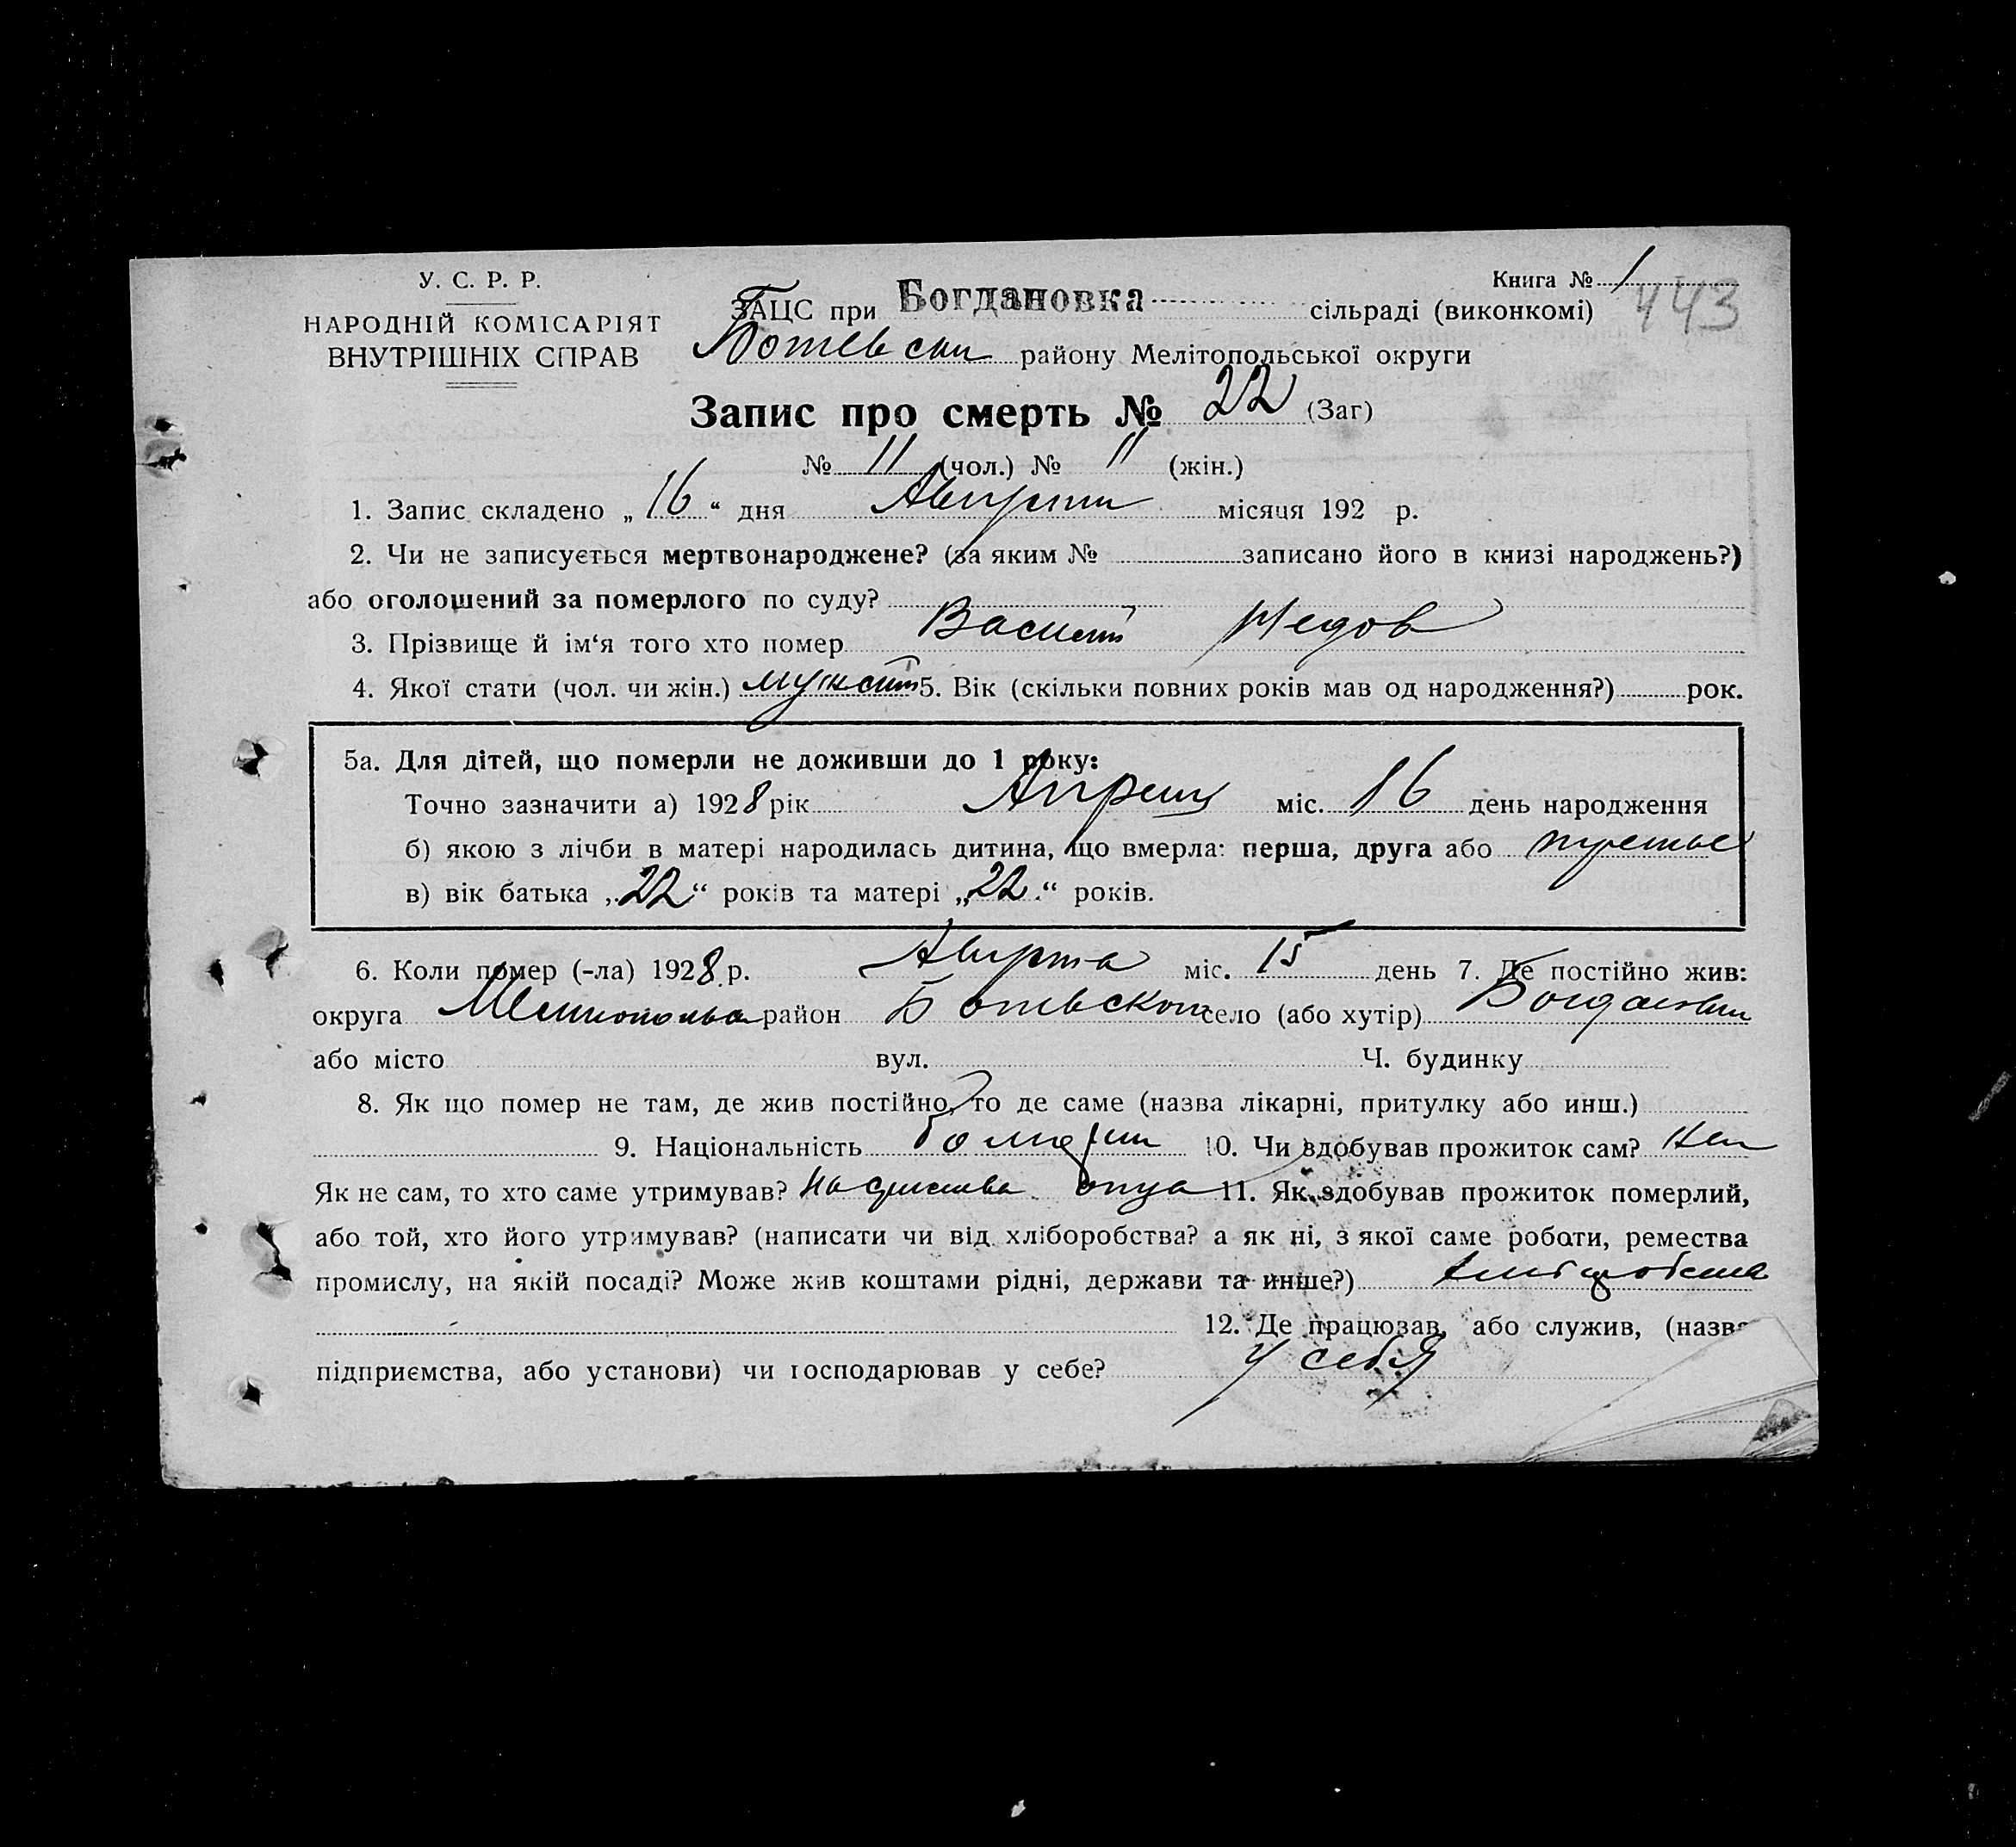 У. С. Р. Р.
НАРОДНІЙ КОМІСАРІЯТ
ВНУТРІШНІХ СПРАВ
Книга № 1
443
ЗАЦС при Богдановка сільраді (виконкомі)
Ботевски району Мелітопольської округи
Запис про смерть № 22 (Заг)
№ 11 (чол.) № 11 (жін.)
1. Запис складено „16“ дня Августа місяця 192 р.
2. Чи не записується мертвонароджене? (за яким № записано його в книзі народжень?)
або оголошений за померлого по суду?
3. Прізвище й ім‘я того хто помер Василий Недов
4. Якої стати (чол. чи жін.) 5. Вік (скільки повних років мав од народження?) рок.
5а. Для дітей, що померли не доживши до 1 року:
Точно зазначити а) 1928 рік Апреля міс. 16 день народження
б) якою з лічби в матері народилась дитина, що вмерла: перша, друга або третье
в) вік батька „22“ років та матері „22“ років.
6. Коли помер (-ла) 1928 р. Августа міс. 15 день 7. Де постійно жив:
округа район Ботевского село (або хутір) Богдановки
або місто вул. Ч. будинку
8. Як що помер не там, де жив постійно, то де саме (назва лікарні, притулку або инш.)
9. Національність болгарин 10. Чи здобував прожиток сам? Нет
Як не сам, то хто саме утримував? На средства отца 11. Як здобував прожиток померлий,
або той, хто його утримував? (написати чи від хліборобства? а як ні, з якої саме роботи, ремества
промислу, на якій посаді? Може жив коштами рідні, держави та инше?)
12. Де працював, або служив, (назва
підприємства, або установи) чи господарював у себе? У себя